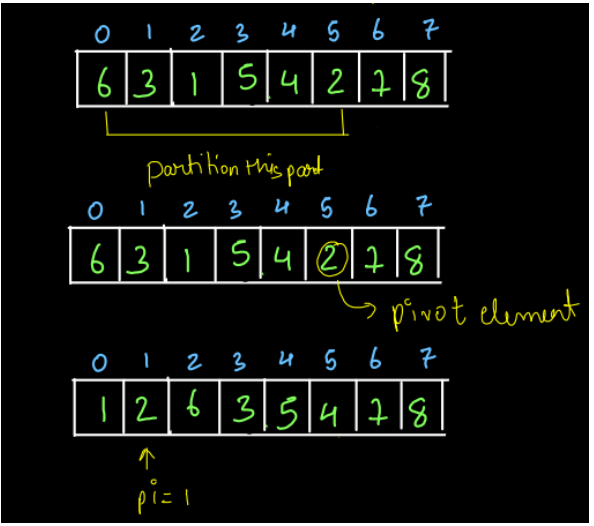 0 1 2 3 4 5 6 7
6 3 1 5 4 2 7 8
partition this part
0 1 2 3 4 5 6 7
6 3 1 5 4 2 7 8
pivot element
0 1 2 3 4 5 6 7
1 2 6 3 5 4 7 8
pi = 1